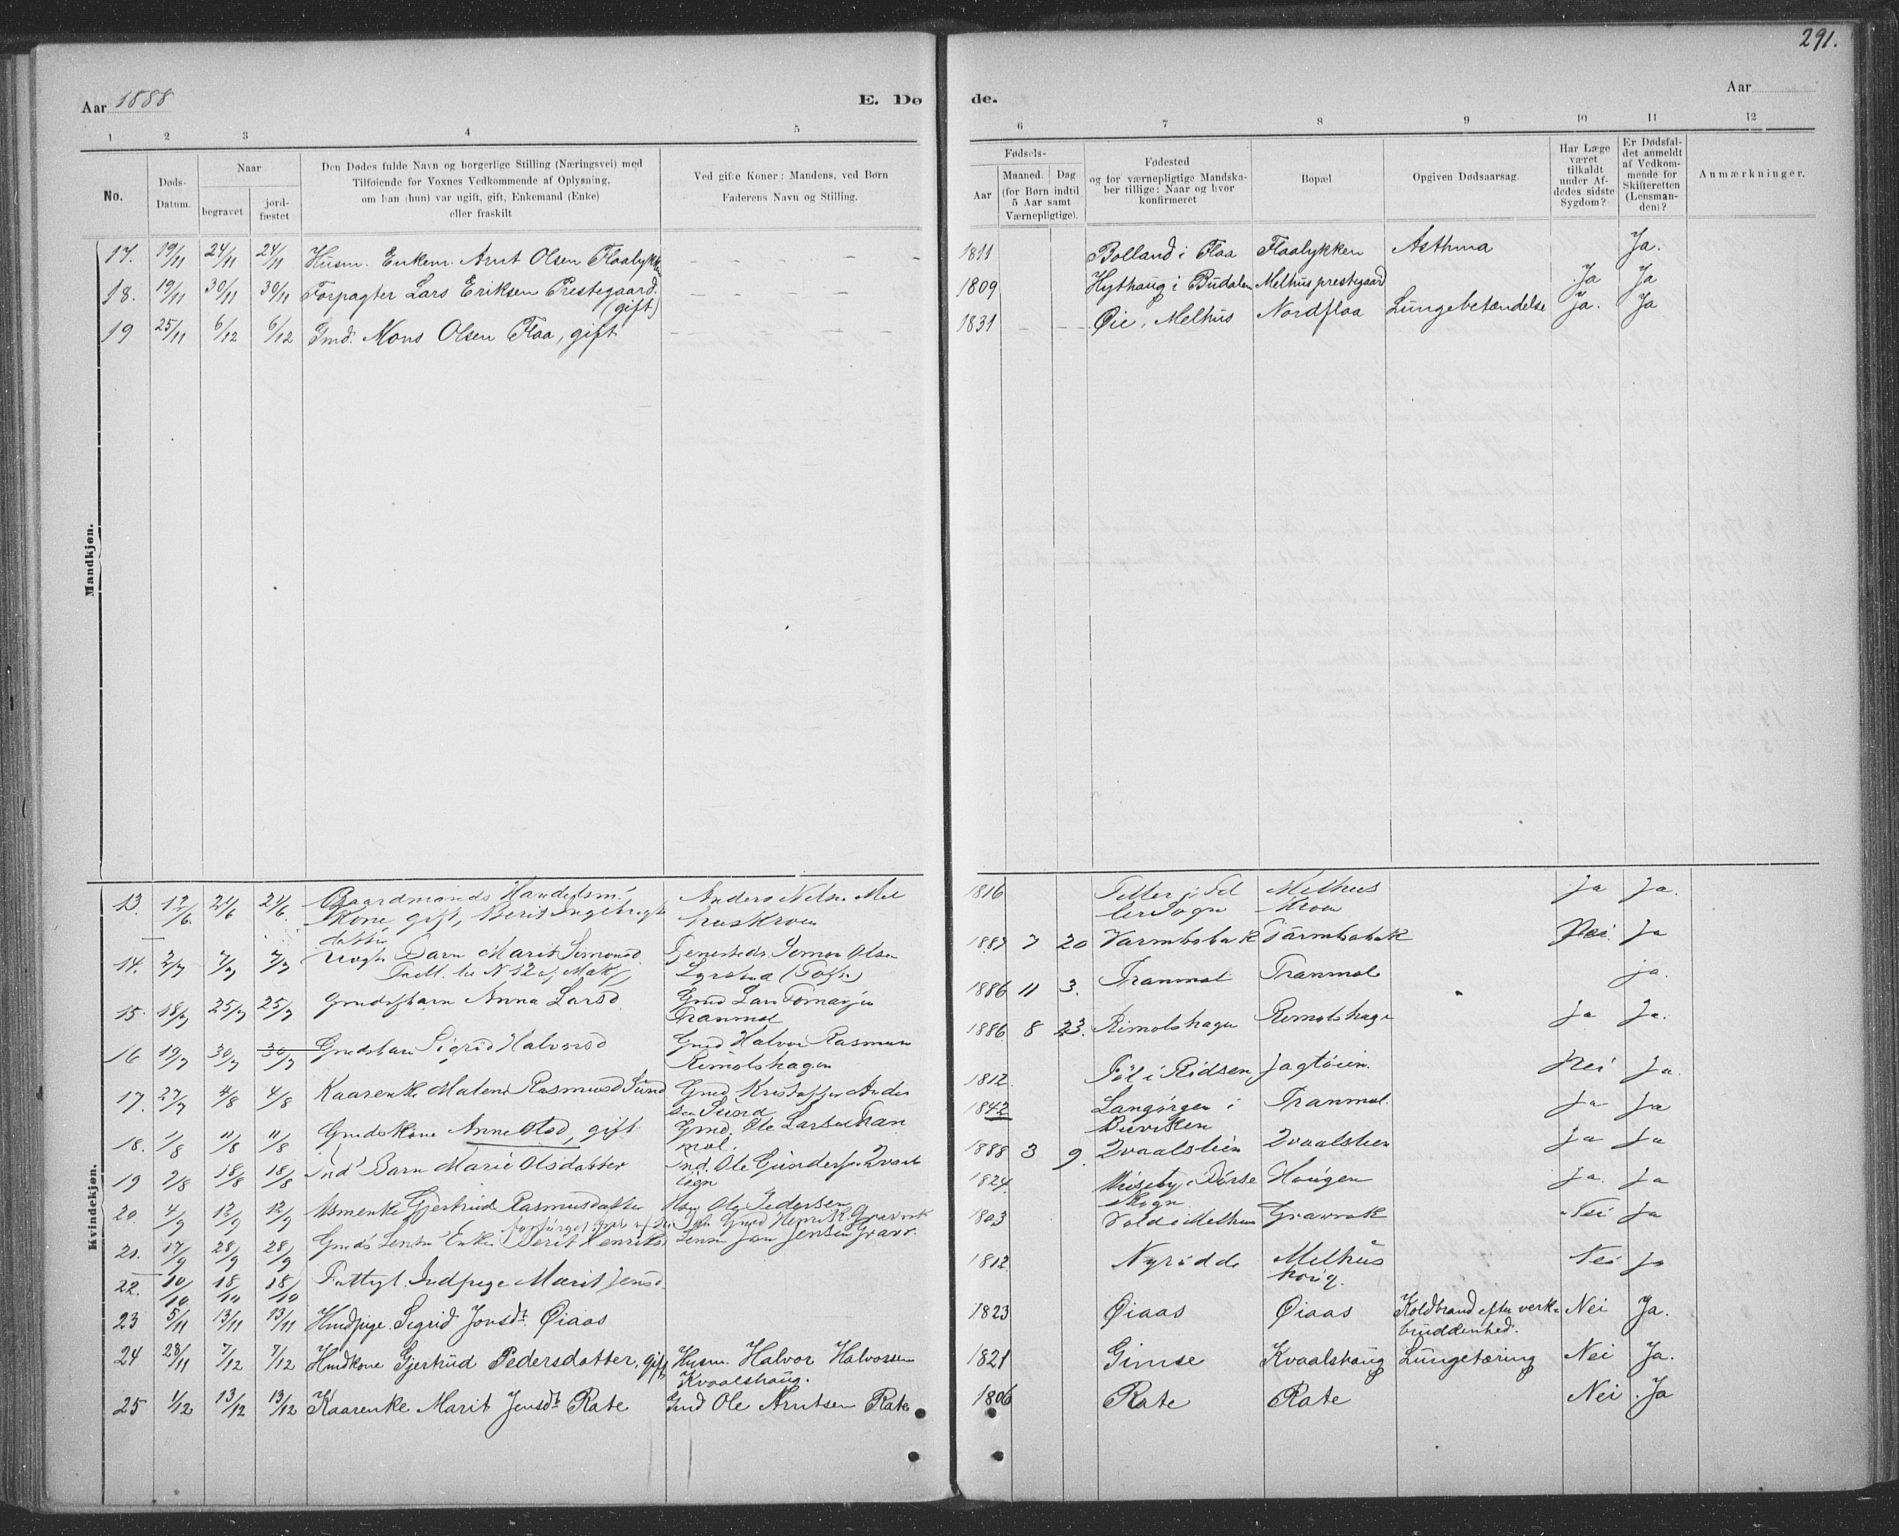 291.
Aar 1888 E. Dø de. Aar
1 2 3 4 5 6 7 8 9 10 11 12
No.
Døds-
Datum.
Naar
begravet
jord-
fæstet
Den Dødes fulde Navn og borgerlige Stilling (Næringsvei) med
Tilføiende for Voxnes Vedkommende af Oplysning,
om han (hun) var ugift, gift, Enkemand (Enke)
eller fraskilt
Ved gifte Koner: Mandens, ved Børn
Faderens Navn og Stilling.
Fødsels-
Aar
Maaned. Dag
(for Børn indtil
5 Aar samt
Værnepligtige).
Fødested
og for værnepligtige Mandska-
ber tillige: Naar og hvor
konfirmeret
Bopæl
Opgiven Dødsaarsag.
Har Læge
været
tilkaldt
under Af-
dødes sidste
Sygdom?
Er Dødsfal-
det anmeldt
af Vedkom-
mende for
Skifteretten
(Lensman-
den)?
Anmærkninger.
Mandkjøn.
17. 19/11 24/11 24/11 Husm. Enkem. Arnt Olsen Flaalykken - - - - - 1811 Bolland i Flaa Flaalykken Asthma Ja.
18. 19/11 30/11 30/11 Forpagter Lars Eriksen Prestegaard. - - - - - 1809 Hythaug i Budalen Melhusprestegaard Ja Ja
(gift)
19 25/11 6/12 6/12 Gmd. Mons Olsen Flaa, gift - - - - - 1831 Øie, Melhus Nordflaa Lungebetændelse Ja. Ja
Kvindekjøn.
13. 21/6 21/6. Gaardmands Handelsm. Anders Nilsen Mel 1816 Tiller i Til Melhus ja ja.
Kone, gift, Berit Ingebrigt huskroen ler Sogn Kroen
datter
14. 2/7 7/7 7/7 Uægt Barn Marit Simonsd. Simon Olsen 1887 7 20 Varmbobak Varmbobak Nei ja
Indt. N 12 af Mak)
15. 18/7 25/7 25/7 Gmdsbarn Anna Larsd Gmd Lars Tranmel 1886 11 3. Tranmel Tranmel ja.
16 19/7 30/7 30/7 Gmdsbarn Sigrid Halvorsd Gmd Halvor Rasmus 1886 8 23. Rimolshagen Rimolshagen ja ja.
Rimolshagen
17. 27/7 4/8 4/8 Kaarenke Malena Rasmusd Sund Gmd Kristoffer Ander 1812 i Ridsen Jagtøien. Nei ja.
sen Sund
18. 1/8 11/8 11/8 Gmdskone Anne Olsd, gift Gmd. Ole Larsen Tran 1842 Langørgen i Tranmel. ja ja
mel. Buviken
19 2/8 18/8 18/8 Ind. Barn Marie Olsdatter Ind. Ole Gundersen Kvaals 1888 3 9. Kvaalslien Kvaalslien ja ja
lien
20. 4/9 12/9 12/9 Husmenke Gjertrud Rasmusdatter Ole Pedersen 1824 i Børse Hougen ja. ja
Skogn
21. 17/9 28/9 28/9 Enke Berit Henriks. Jensen Gravr. 1803 Vold i Melhus Gravrok Nei ja
22. 10/10 18/10 18/10 Fattigl. Indpige Marit Jensd 1812 Nyrødde Melhus Nei ja
houg.
23 5/11 13/11 13/11 Hmdpige Sigrid Jonsdt. Øiaas 1823 Øiaas Øiaas Koldbrand efter verke Nei Ja.
bruddenhed.
24 28/11 7/12 7/12 Hmdkone Gjertrud Pedersdatter, gift Husm. Halvor Halvorsen 1821 Gimse Kvaalshaug Lungetæring Nei Ja.
Kvaalshaug.
25 1/12 13/12 13/12 Kaarenke Marit Jensdt. Rate Gmd Ole Arntsen Rate 1806 Rate Rate Nei Ja